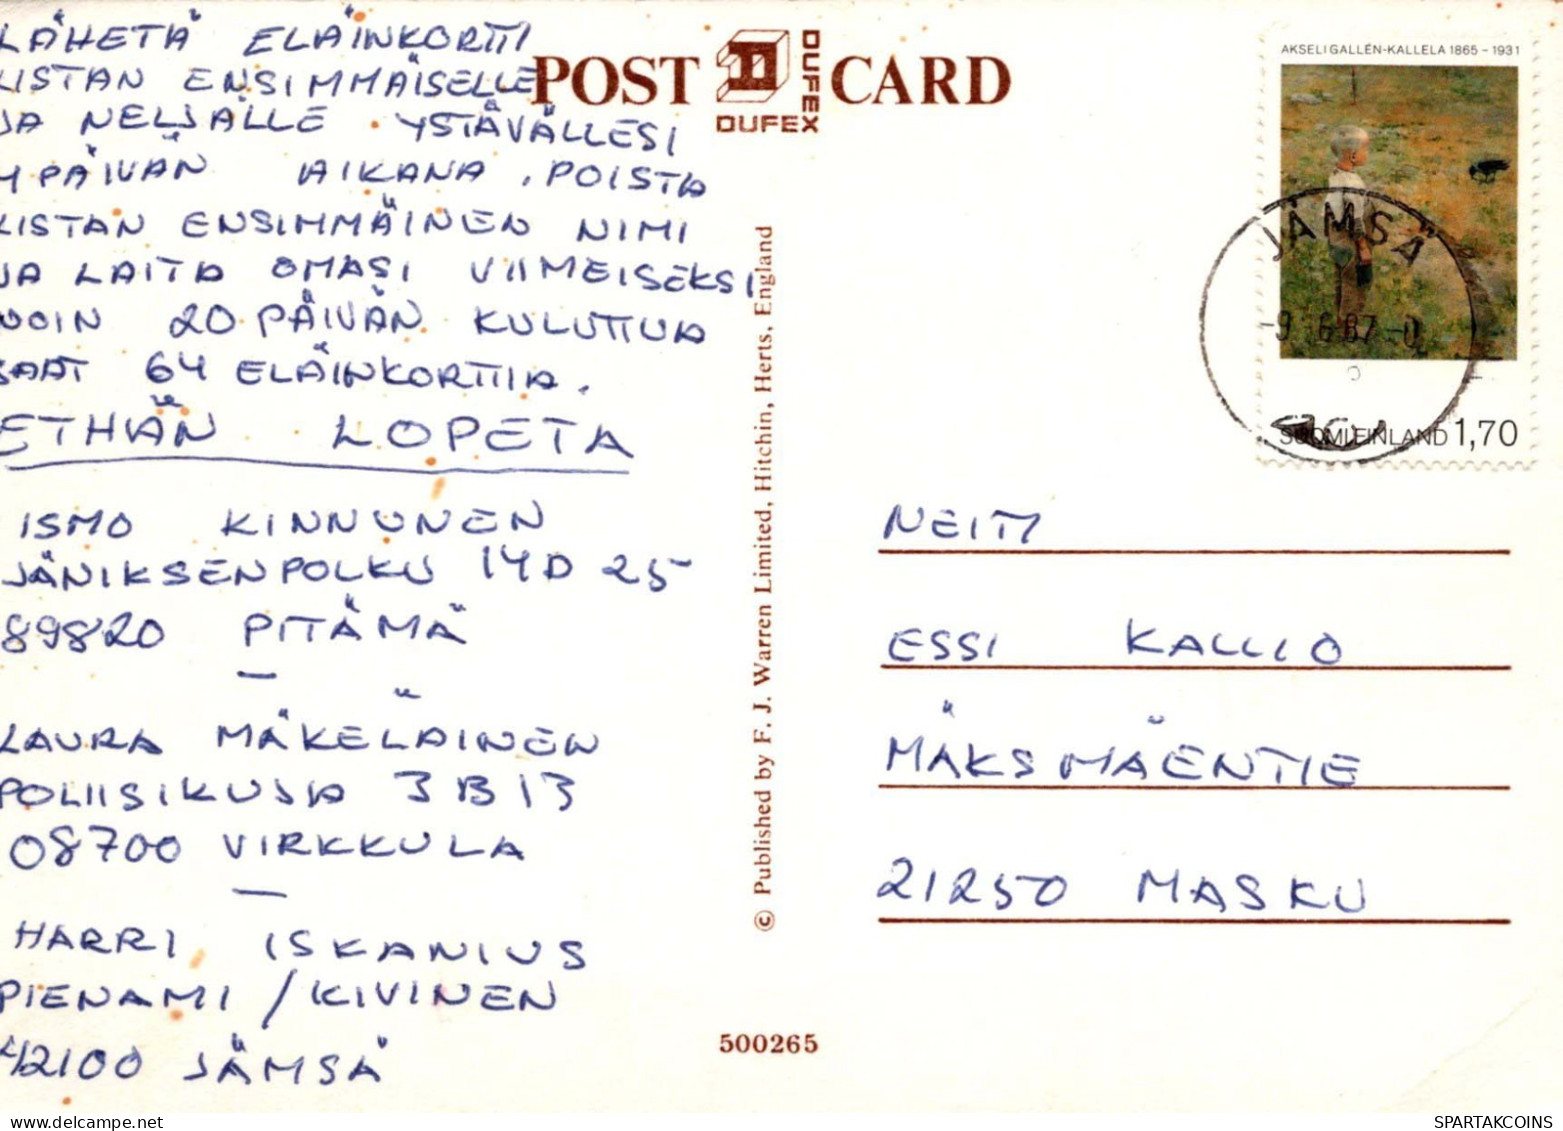 LÄHETÄ ELÄINKORTTI
LISTAN ENSIMMÄISELLE
JA NELJÄLLE YSTÄVÄLLESI
4 PÄIVÄN AIKANA, POISTA
LISTAN ENSIMMÄINEN NIMI
JA LAITA OMASI VIIMEISEKSI
NOIN 20 PÄIVÄN KULUTTUA
SAAT 64 ELÄINKORTTIA.
ETHÄN LOPETA
ISMO KINNUNEN
JÄNIKSENPOLKU 14 D 25
89820 PITÄMÄ
LAURA MÄKELÄINEN
POLIISIKUJA 3 B 13
08700 VIRKKULA
HARRI ISKANIUS
PIENAMI / KIVINEN
42100 JÄMSÄ
POST CARD
DUFEX
DUFEX
© Published by F. J. Warren Limited, Hitchin, Herts, England
500265
AKSELI GALLÉN-KALLELA 1865 – 1931
JÄMSÄ
-9.6.87-0
SUOMI FINLAND 1,70
NEITI
ESSI KALLIO
MÄKSMÄENTIE
21250 MASKU
SPARTAKCOINS